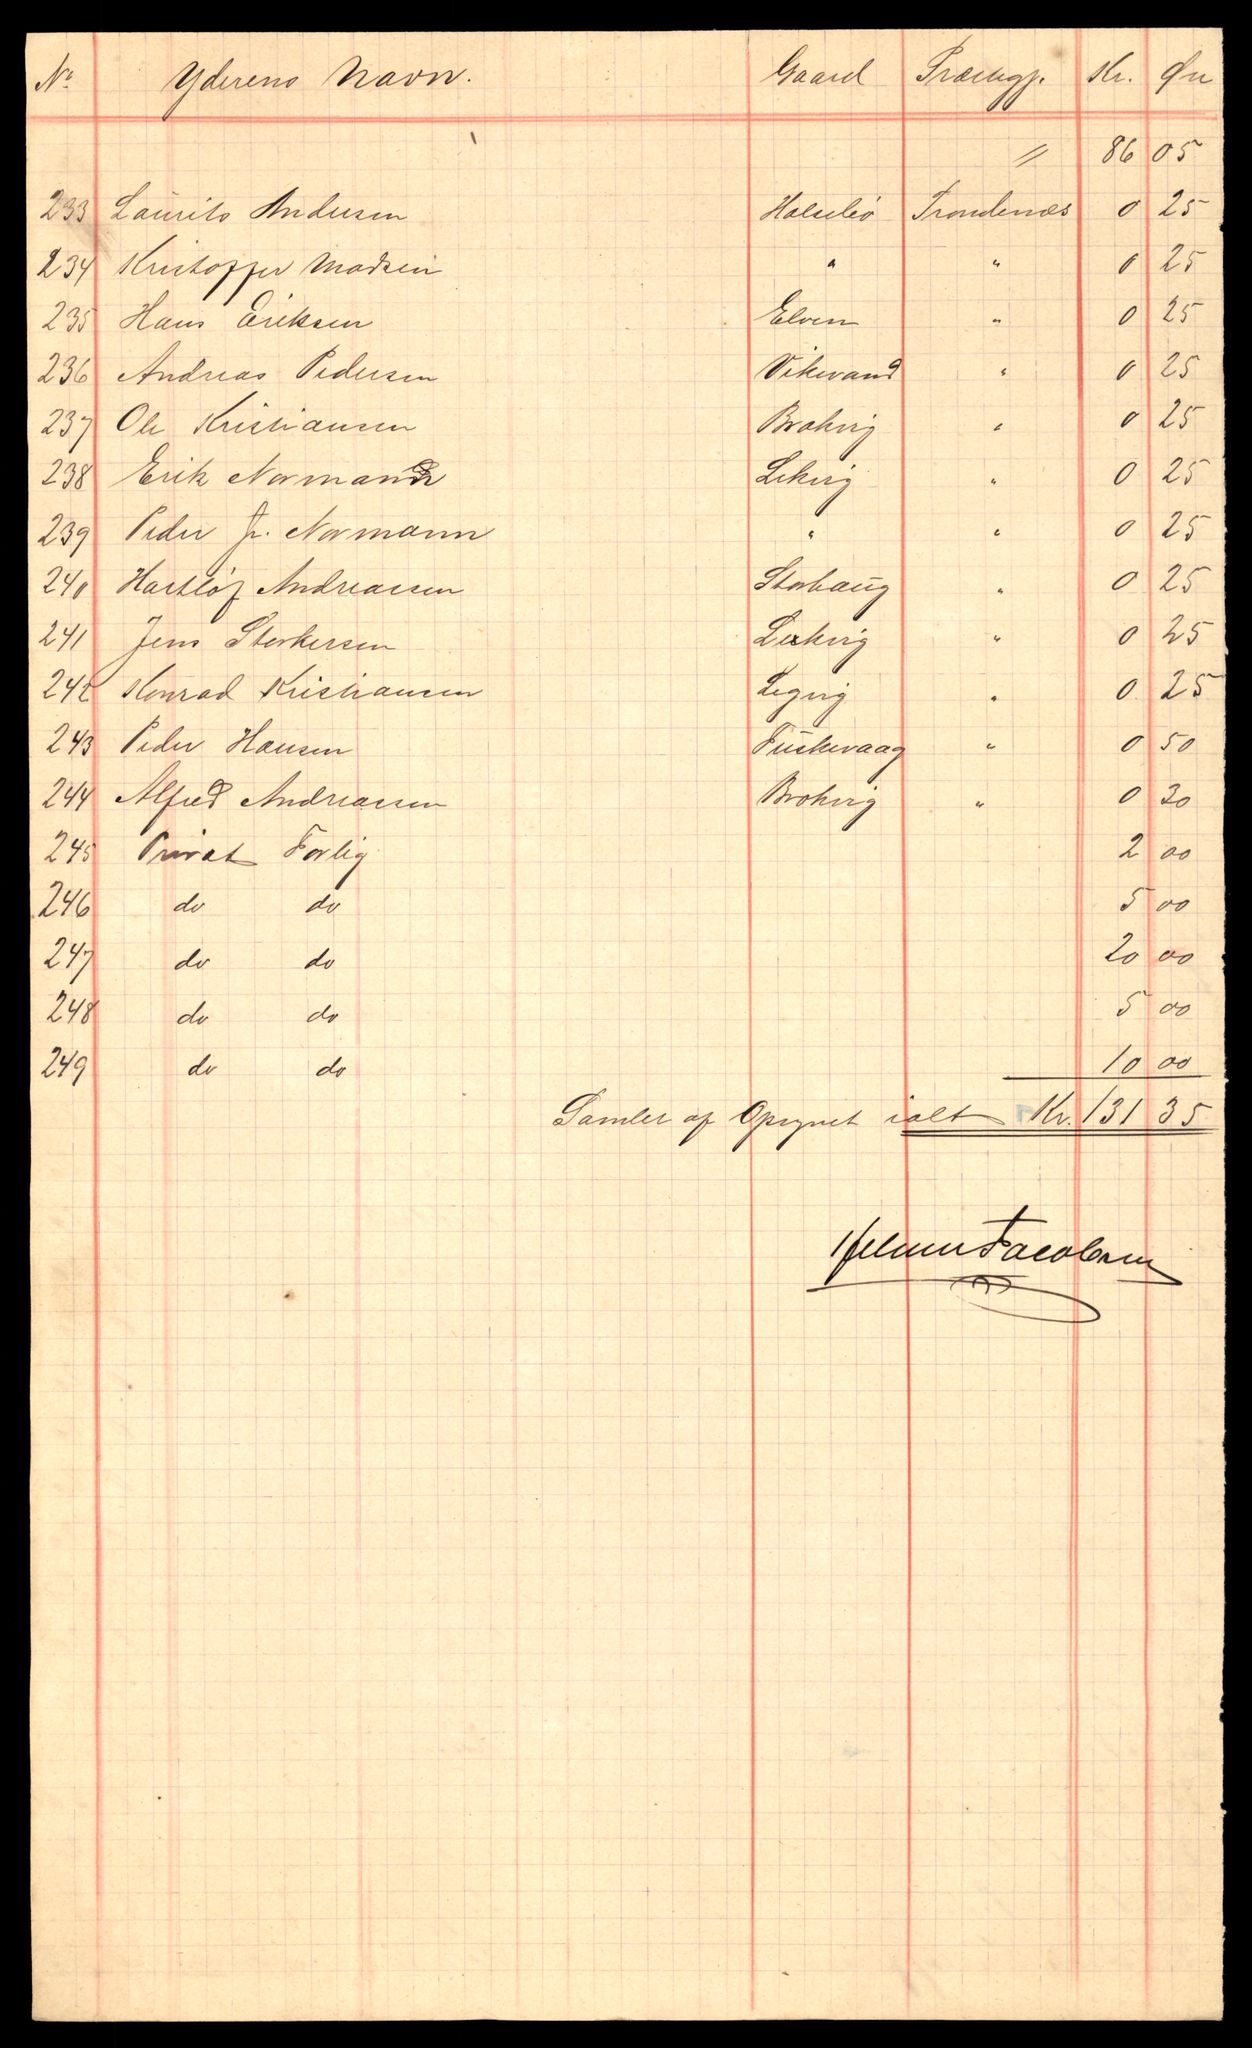 No. Yderens Navn. Gaard Præstegj. Kr. Øre
" 86 05
233 Laurits Andersen Halsebø Trondenæs 0 25
234 Kristoffer Madsen " " 0 25
235 Hans Eriksen Elven " 0 25
236 Andreas Pedersen Vikevand " 0 25
237 Ole Kristiansen Brokvig " 0 25
238 Erik Normann Lekvig " 0 25
239 Peder Jr. Normann " " 0 25
240 Hartløf Andreassen Storhaug " 0 25
241 Jens Storkersen Leikvig " 0 25
242 Konrad Kristiansen Legvig " 0 25
243 Peder Hansen Fuskevaag " 0 50
244 Alfred Andreassen Brokvig " 0 30
245 Privat Forlig 2 00
246 do do 5 00
247 do do 20 00
248 do do 5 00
249 do do 10 00
Samlet af Opsynet ialt Kr. 131 35
Jacobsen